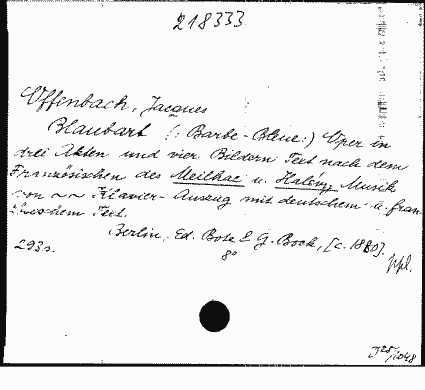 218333
Offenbach, Jacques
Blaubart (: Barbe-Bleue:) Oper in
drei Akten und vier Bildern Text nach dem
Französischen des Meilhac u. Halévy Musik
von ~ ~ Klavier-Auszug mit deutschem u. fran-
zösischem Text.
Berlin, Ed. Bote & G. Bock, [c. 1880].
293 s. 8°
ppl.